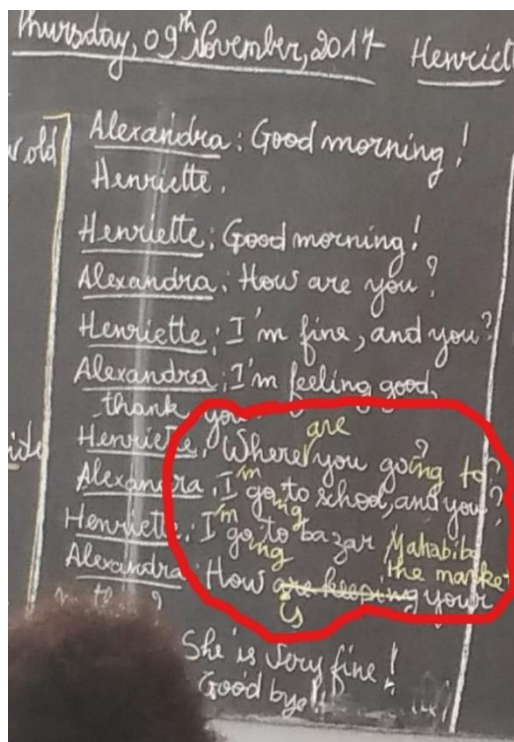 Thursday, 09th November, 2017 Henriett
r old
Alexandra: Good morning!
Henriette.
Henriette: Good morning!
Alexandra: How are you?
Henriette: I'm fine, and you?
Alexandra: I'm feeling good,
thank you
Henriette: Where are you going to?
Alexandra: I'm going to school, and you?
Henriette: I'm going to bazar Mahabibo
the market
Alexandra: How are keeping your
is
She is very fine!
Good bye!